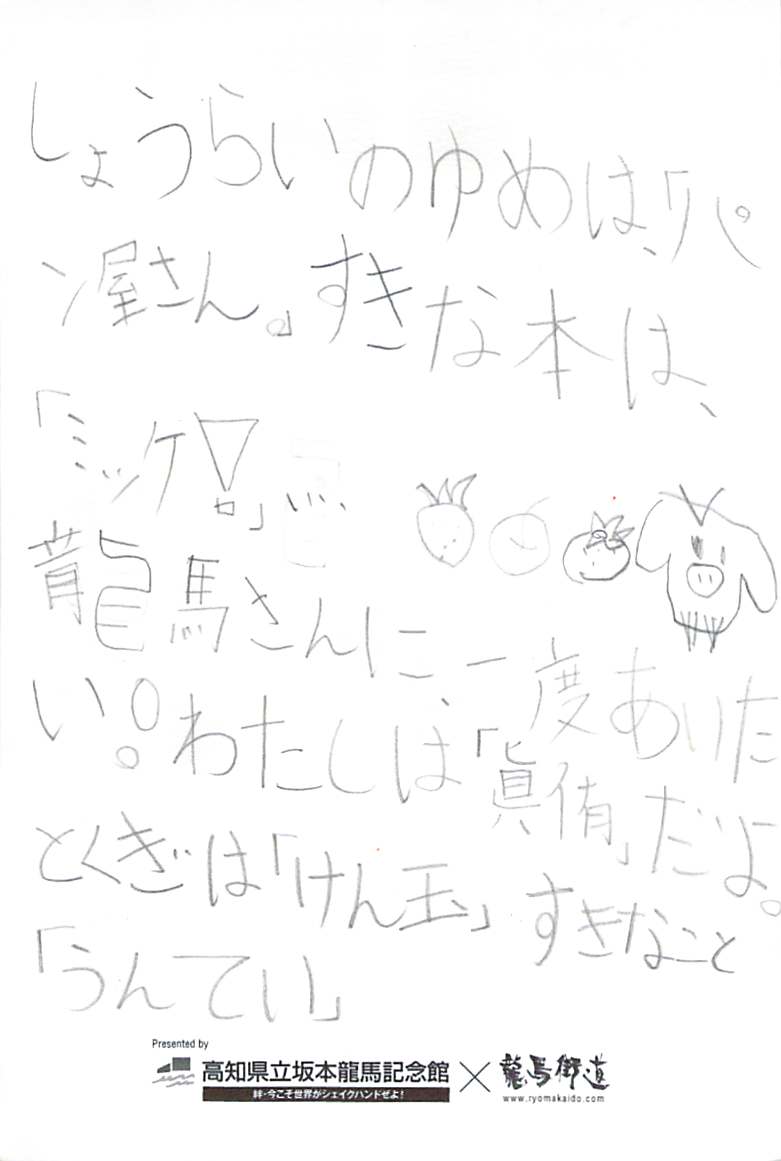 しょうらいのゆめは、「パ
ン屋さん。」すきな本は、
「ミッケ!」
龍馬さんに、一度あいた
い!わたしは、「眞侑」だよ。
とくぎは「けん玉」すきなこと
「うんてい」
Presented by
高知県立坂本龍馬記念館×龍馬街道
絆・今こそ世界がシェイクハンドぜよ!
www.ryomakaido.com